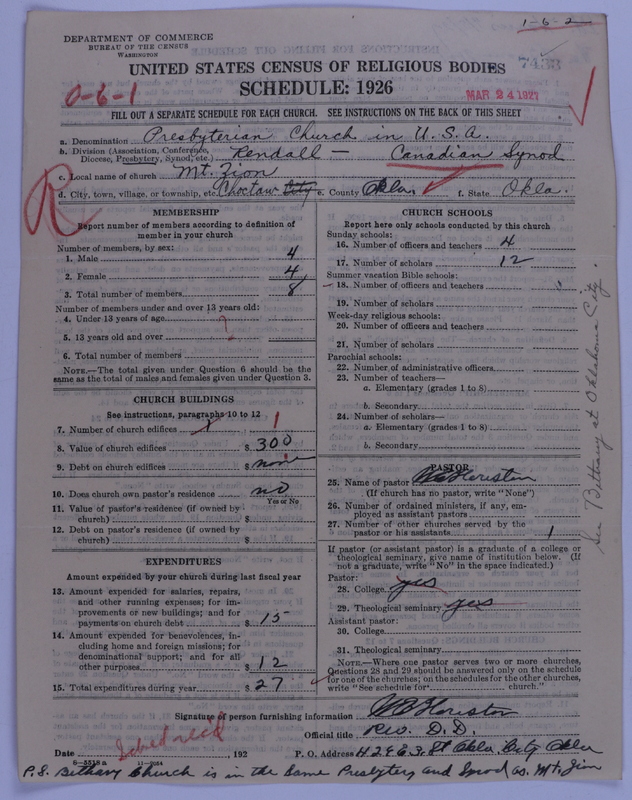 1-6-2
DEPARTMENT OF COMMERCE
BUREAU OF THE CENSUS
WASHINGTON
UNITED STATES CENSUS OF RELIGIOUS BODIES
7433
SCHEDULE: 1926
0-6-1
MAR 24 1927
FILL OUT A SEPARATE SCHEDULE FOR EACH CHURCH. SEE INSTRUCTIONS ON THE BACK OF THIS SHEET
a. Denomination Presbyterian Church in U.S.A.
b. Division (Association, Conference, Diocese, Presbytery, Synod, etc.) Kendall — Canadian Synod
c. Local name of church Mt. Zion
d. City, town, village, or township, etc. Choctaw City e. County Okla. f. State Okla.
R
MEMBERSHIP
Report number of members according to definition of
member in your church
Number of members, by sex:
1. Male 4
2. Female 4
3. Total number of members 8
Number of members under and over 13 years old:
4. Under 13 years of age ?
5. 13 years old and over
6. Total number of members
NOTE.—The total given under Question 6 should be
same as the total of males and females given under Question 3.
CHURCH BUILDINGS
See instructions, paragraphs 10 to 12
7. Number of church edifices 1
8. Value of church edifices $ 300
9. Debt on church edifices $ none
10. Does church own pastor's residence no
Yes or No
11. Value of pastor's residence (if owned by
church) $
12. Debt on pastor's residence (if owned by
church) $
EXPENDITURES
Amount expended by your church during last fiscal year
13. Amount expended for salaries, repairs,
and other running expenses; for im-
provements or new buildings; and for
payments on church debt $ 15
14. Amount expended for benevolences, in-
cluding home and foreign missions; for
denominational support; and for all
other purposes $ 12
15. Total expenditures during year $ 27
CHURCH SCHOOLS
Report here only schools conducted by this church
Sunday schools:
16. Number of officers and teachers 4
17. Number of scholars 12
Summer vacation Bible schools:
18. Number of officers and teachers
19. Number of scholars
Week-day religious schools:
20. Number of officers and teachers
21. Number of scholars
Parochial schools:
22. Number of administrative officers
23. Number of teachers—
a. Elementary (grades 1 to 8)
b. Secondary
24. Number of scholars—
a. Elementary (grades 1 to 8)
b. Secondary
PASTOR
25. Name of pastor
(If church has no pastor, write "None")
26. Number of ordained ministers, if any, em-
ployed as assistant pastors
27. Number of other churches served by the
pastor or his assistants 1
If pastor (or assistant pastor) is a graduate of a college or
theological seminary, give name of institution below. (If
not a graduate, write "No" in the space indicated.)
Pastor:
28. College yes
29. Theological seminary yes
Assistant pastor:
30. College
31. Theological seminary
NOTE.—Where one pastor serves two or more churches,
Questions 28 and 29 should be answered only on the schedule
for one of the churches; on the schedules for the other churches,
write "See schedule for church."
See Bethany at Oklahoma City.
Signature of person furnishing information
Official title Rev. D.D.
Date 192 P. O. Address Okla. City Okla
6-5518a 11-7054
P.S. Bethany Church is in the same Presbytery and Synod as Mt. Zion